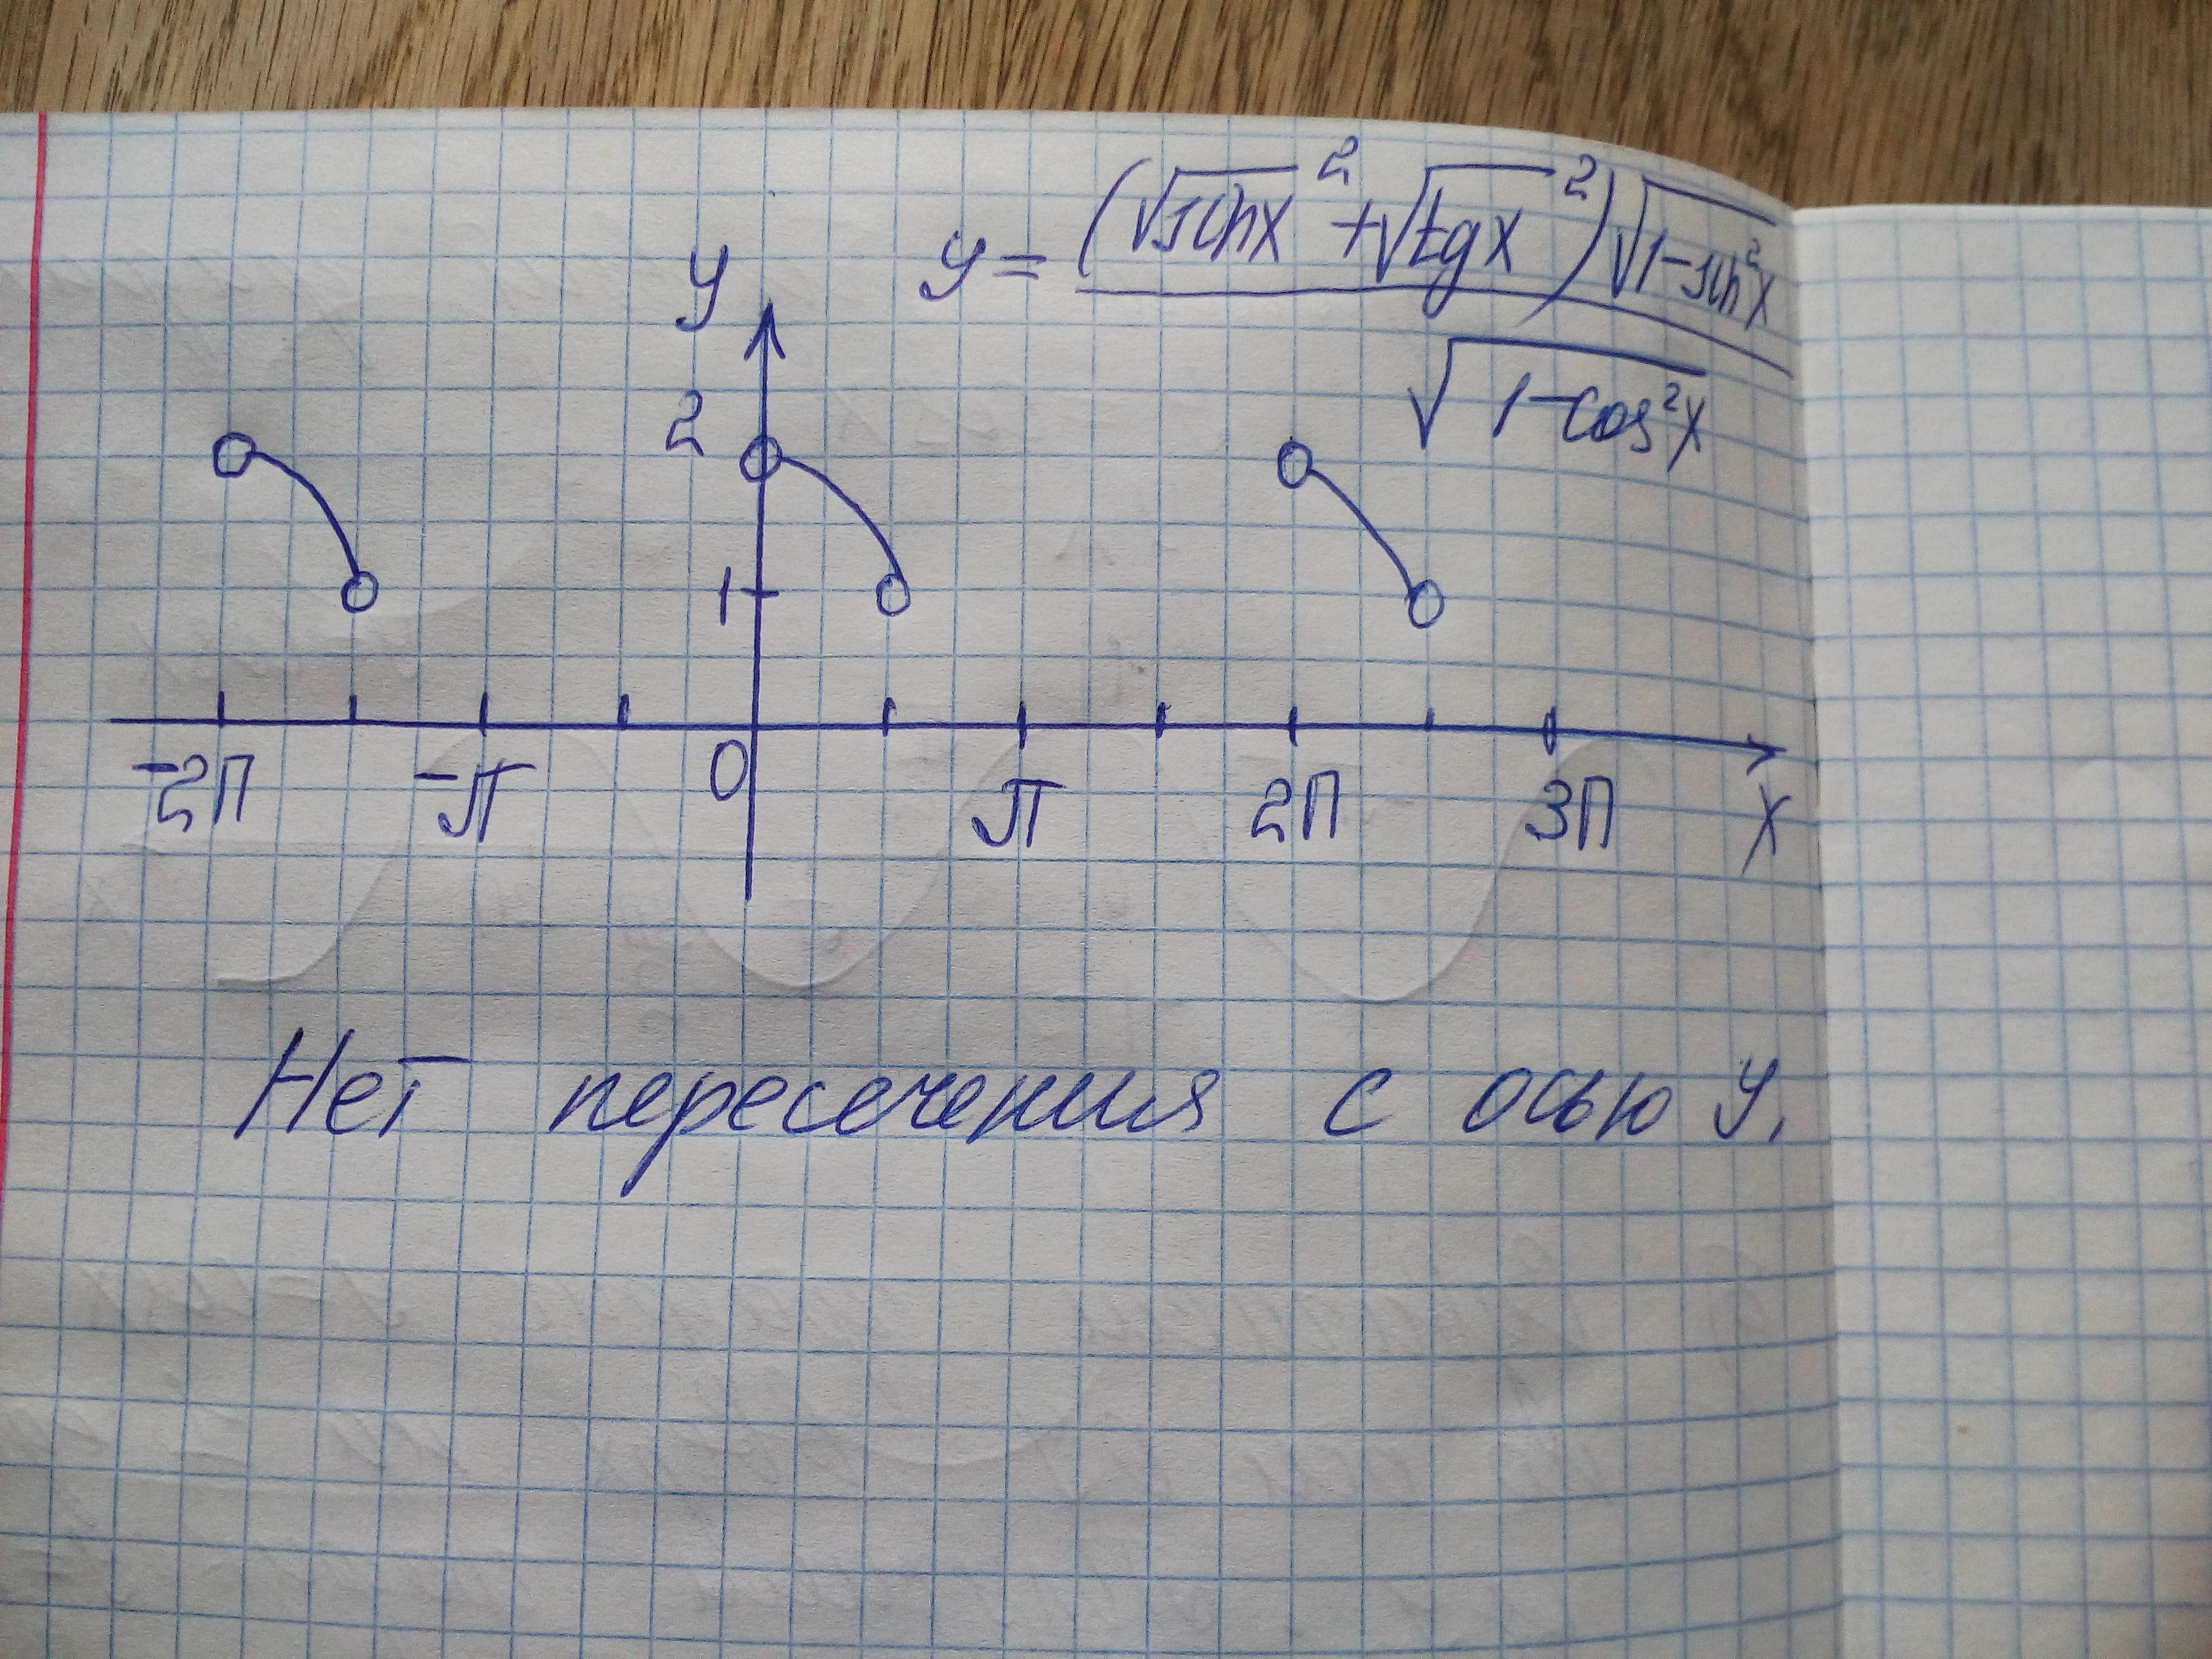 y = (√sinx² + √tgx²)√1-sin²x
√1-cos²x
y
2
1
-2π -π 0 π 2π 3π x
Нет пересечения с осью y.